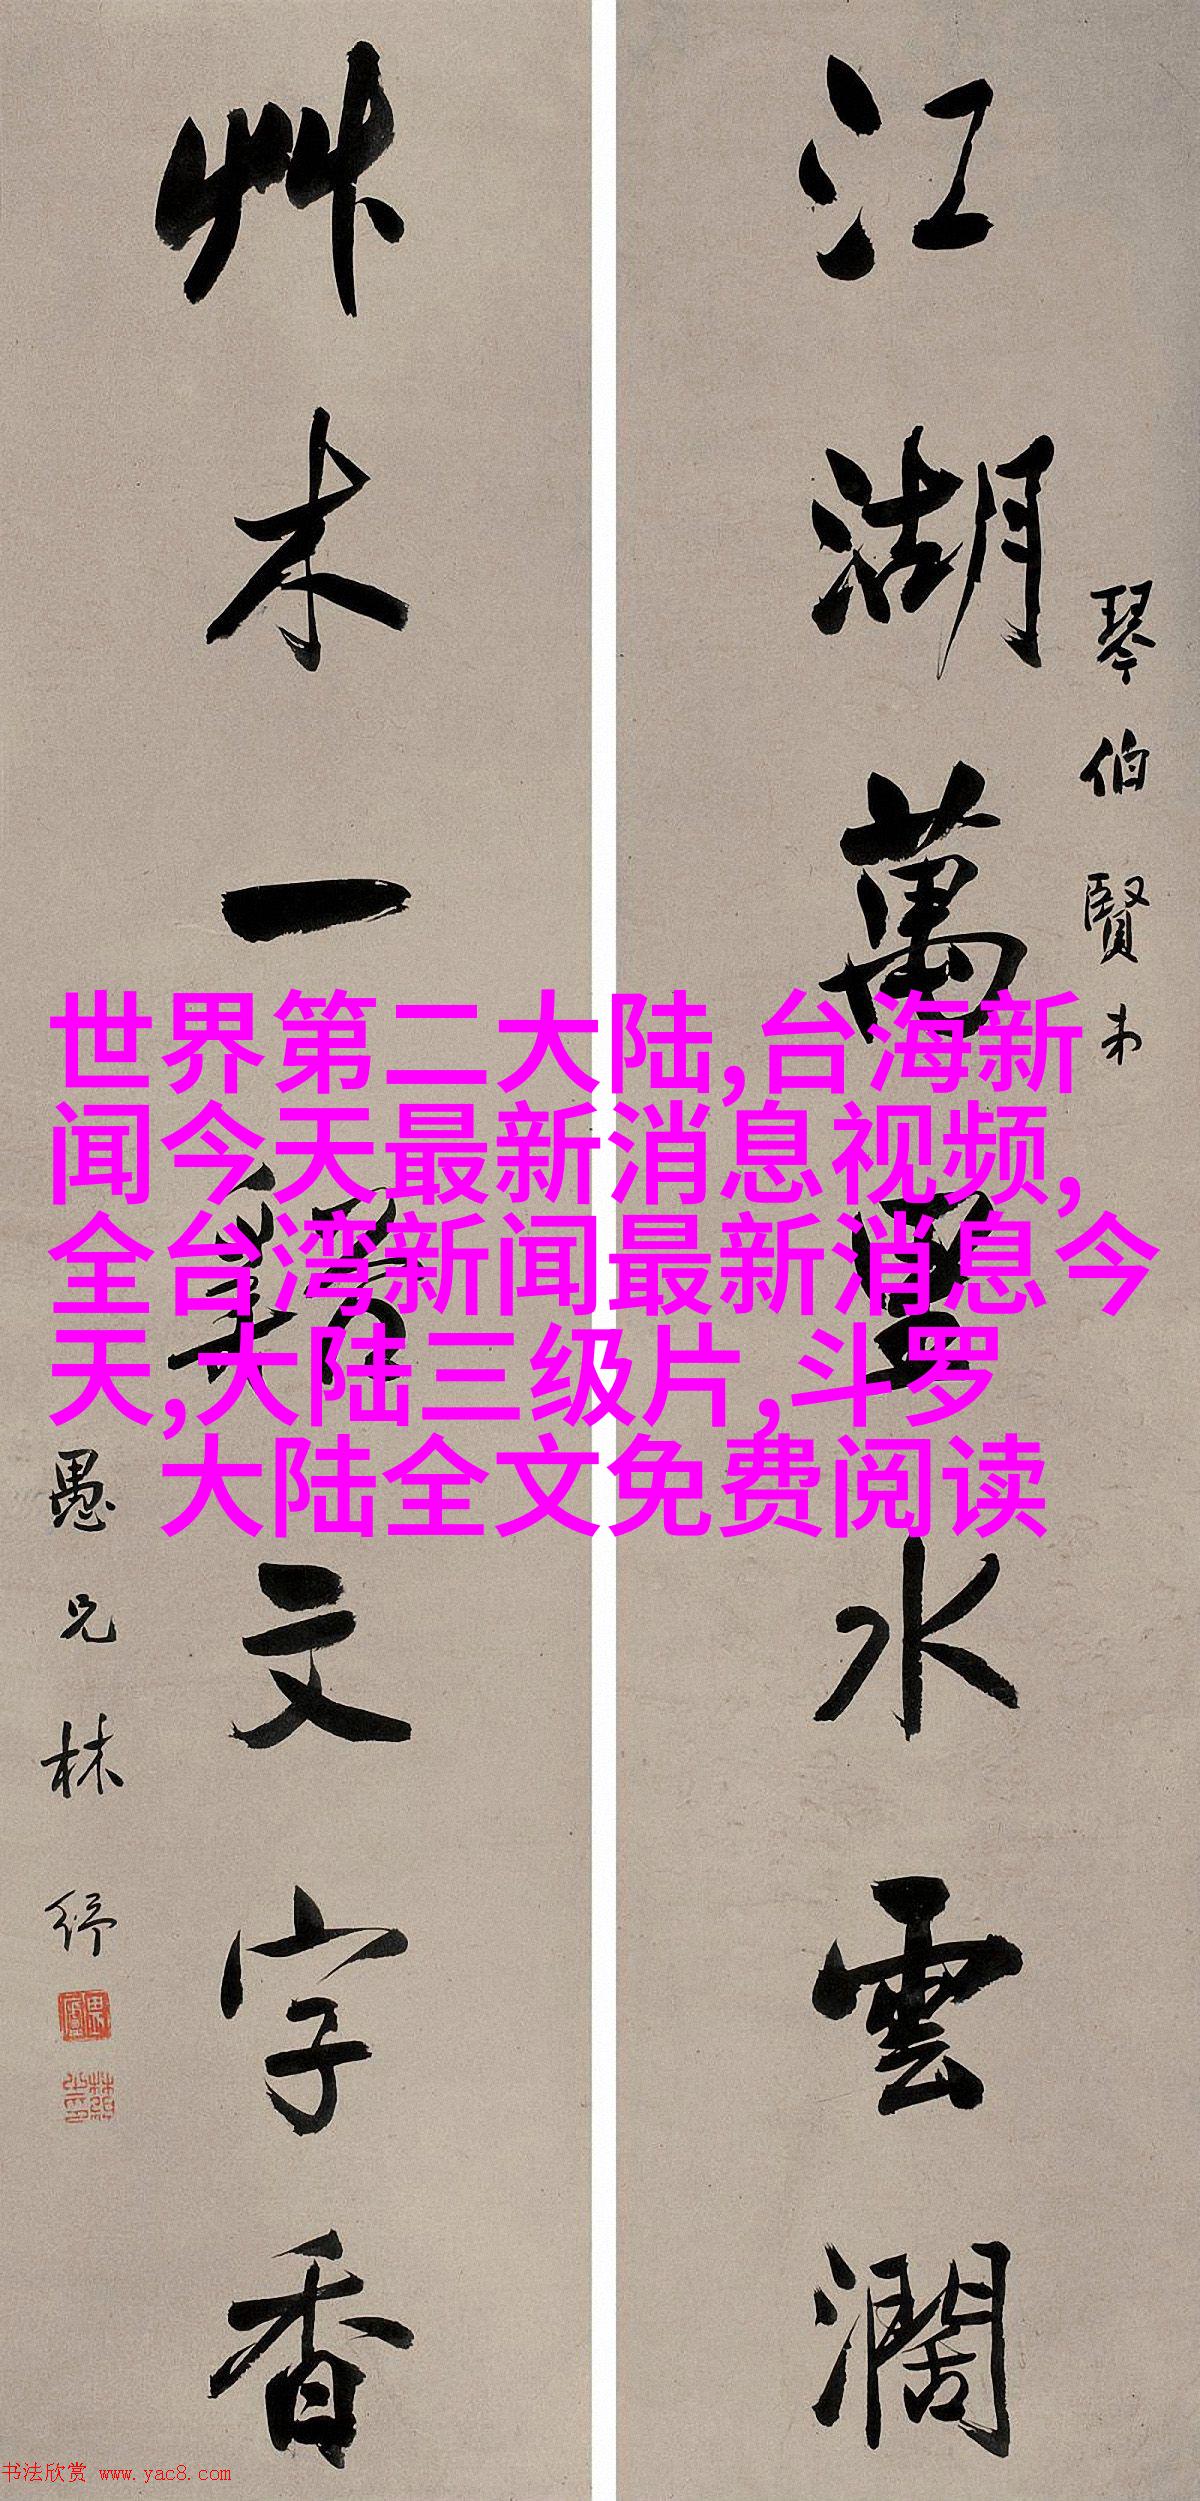 江湖萬里水雲潤
琴伯賢弟
艸木一籍文字香
愚兄林紓
世界第二大陆,台海新
闻今天最新消息视频,
全台湾新闻最新消息今
天,大陆三级片,斗罗
大陆全文免费阅读
书法欣赏 www.yac8.com